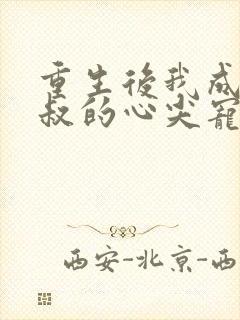 重生後我成
叔的心尖寵
西安-北京-西